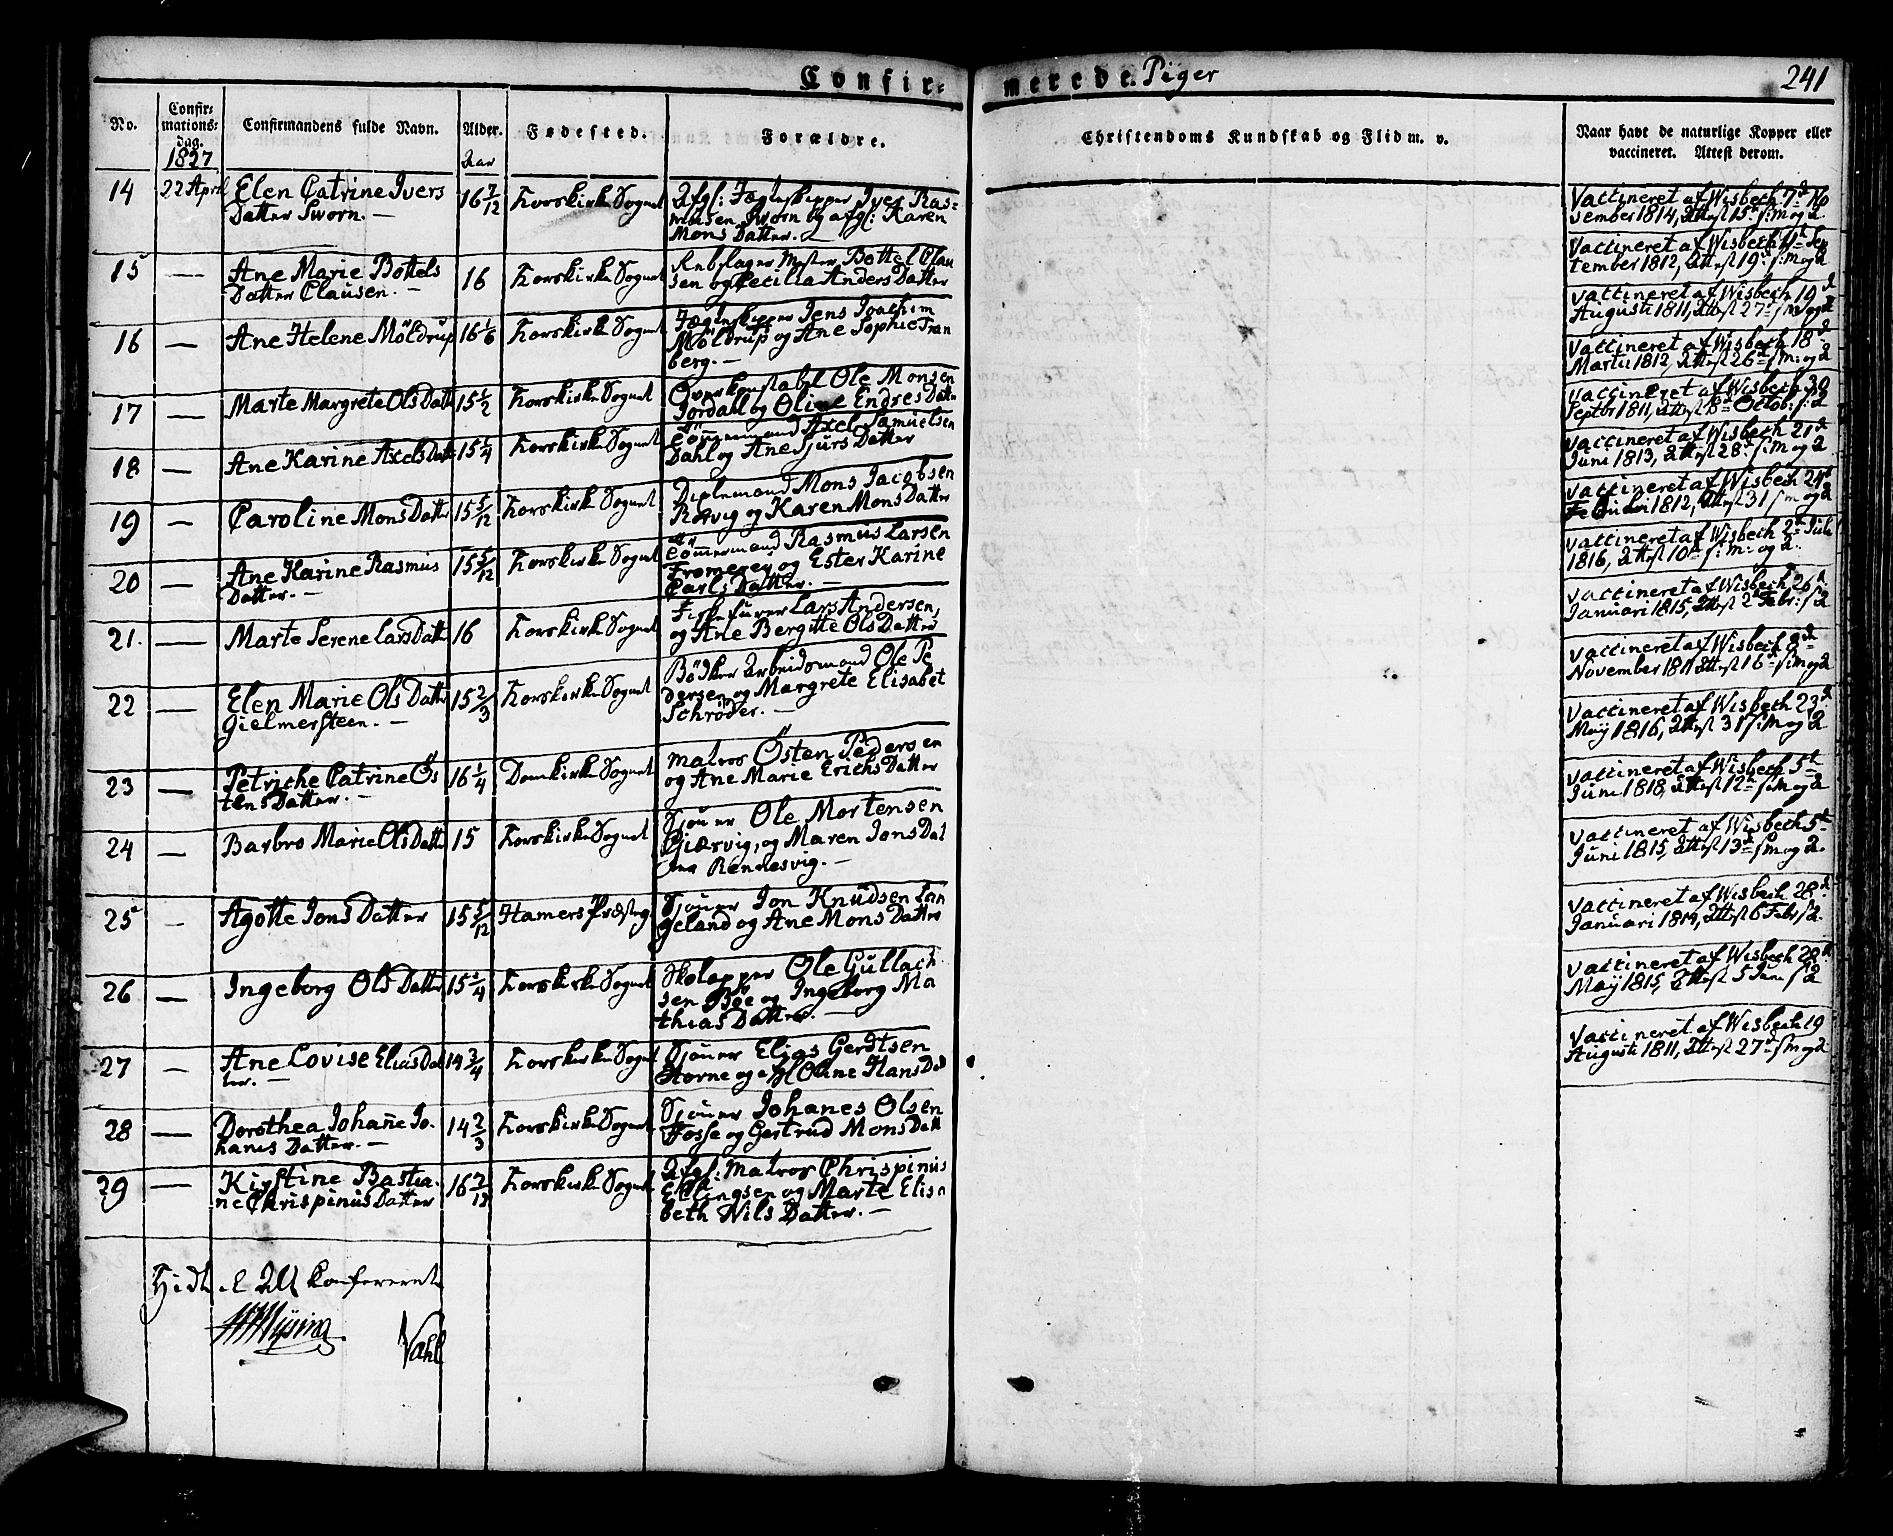 Confir- merede Piger 241
No. Confir-mations-dag. Confirmandens fulde Navn. Alder. Fødested. Forældre. Christendoms Kundskab og Flid m. v. Naar havt de naturlige Kopper eller vaccineret. Attest derom.
1827 Aar
14 22 April Elen Catrine Ivers 16 7/12 Korskirke Sognet Afgl: Jægtskipper Iver Ras-
Datter Sworn. — musen Sworn og afgl: Karen
Mons Datter. —
Vaccineret af Wisbech 7d
sember 1814, Attest 15 s: M og 2
15 — Ane Marie Bottels 16 Korskirke Sognet Rebslager Mester Bottel Clau
Datter Clausen. — sen og Cecilia Anders Datter
Vaccineret af Wisbech Sep
tember 1812, Attest 19 s: M og 2
16 — Ane Helene Möldrup 16 1/6 Korskirke Sognet Jægtskipper Jens Joachim
Möldrup og Ane Sophie Fran
berg. —
Vaccineret af Wisbech 19d
Augusti 1811, Attest 27 s: M og 2
17 — Marte Margrete Ols Datt 15 1/2 Korskirke Sognet Overkonstabel Ole Monsen
Jordahl og Oline Endres Datt
Vaccineret af Wisbech 18d
Martii 1812, Attest 26 s: M: og 2
18 — Ane Karine Axels Datt 15 1/4 Korskirke Sognet Tömmermand Axel Samuelsen
Dahl og Ane Sjurs Datter
Vaccineret af Wisbech 30
Septbr 1811, Attest 8d Octob: s: 2
19 — Caroline Mons Datter 15 5/12 Korskirke Sognet Mons Jacobsen
Rörvig og Karen Mons Datter
Vaccineret af Wisbech 21d
Juni 1813, Attest 28 s: M og 2
20 — Ane Karine Rasmus 15 5/12 Korskirke Sognet Tömmermand Rasmus Larsen
Datter. — Fromerey og Ester Karine
Carls Datter. —
Vaccineret af Wisbech 24d
Februari 1812, Attest 31 s M og 2
21. — Marte Serene Lars Datt 16 Korskirke Sognet Fiskefurer Lars Andersen,
og Ane Bergitte Ols Datter
Vaccineret af Wisbech 2d Juli
1816, Attest 10 s: M: og 2.
22 — Elen Marie Ols Datter 15 2/3 Korskirke Sognet Bödker Arbeidsmand Ole Pe
Gielmersteen. — dersen og Margrete Elisabet
Schröder. —
Vaccineret af Wisbech 26d
Januari 1815, Attest 2d Febr: s 2
23 — Petriche Catrine Ös 16 1/4 Domkirke Sognet Matros Østen Pedersen
tens Datter. — og Ane Marie Erichs Datter
Vaccineret af Wisbech
November 1811 Attest 16 s: M og 2
24 — Barbro Marie Ols Datt 15 Korskirke Sognet Sjøuer Ole Mortensen
Giærvig, og Maren Jons Dat
ter Rendesvig. —
Vaccineret af Wisbech 23d
Maÿ 1816, Attest 31 s: M og 2
25 — Agotte Jons Datter 15 5/12 Hamers Præsteg Sjøuer Jon Knudsen Lan
geland og Ane Mons Datter
Vaccineret af Wisbech 5t
Juni 1818, Attest 12 s: M og 2
26 — Ingeborg Ols Datter 15 1/4 Korskirke Sognet Ole Gullach
sen Bøe og Ingeborg Ma
thias Datter. —
Vaccineret af Wisbech 5t
Juni 1815, Attest 13 s M og 2.
27 — Ane Lovise Elias Dat 14 3/4 Korskirke Sognet Sjøuer Elias Gerdtsen
ter. — Storne og afgl Oline Hans Dat
Vaccineret af Wisbech 28d
Januari 1819, Attest 6 Febr s 2.
28 — Dorothea Johañe Jo- 14 2/3 Korskirke Sognet Sjøuer Johanes Olsen
hanes Datter. — Fosse og Gertrud Mons Datt
Vaccineret af Wisbech 28d
Maÿ 1815, Attest 5 Juni s 2
29 — Kirstine Bastia- 16 7/12 Korskirke Sognet Afgl: Matros Chrispinus
ne Chrispinus Datter Ellingsen og Marte Elisa
beth Nils Datter. —
Vaccineret af Wisbech 19
Augusti 1811, Attest 27 s M og 2
Hidtil Alt Konfereret
Vahl